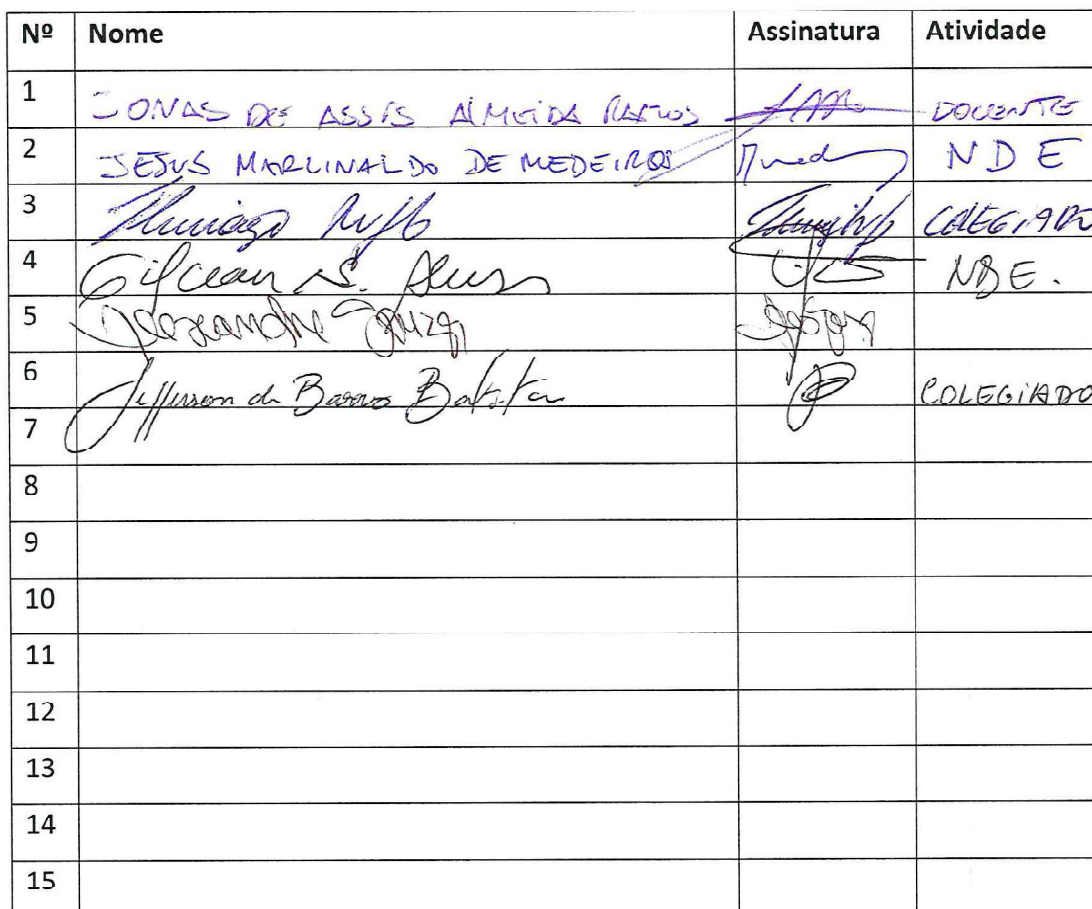 Nº Nome Assinatura Atividade
1 JONAS DE ASSIS ALMEIDA RAMOS DOCENTE
2 JESUS MARLINALDO DE MEDEIROS NDE
3 Thuiago COLEGIADO
4 Gilcean S. Alves NDE.
5 Alexandre Souza
6 Jefferson de Barros Batista COLEGIADO
7
8
9
10
11
12
13
14
15